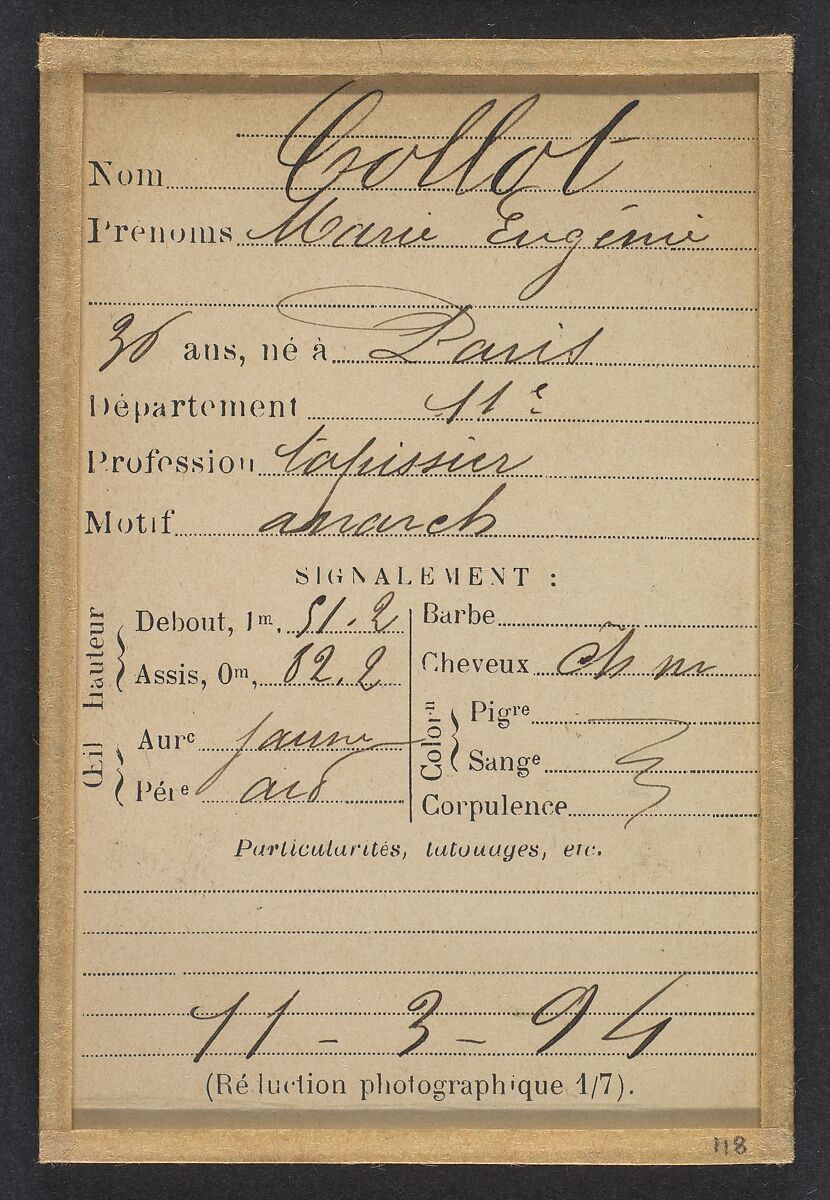 Nom Collot
Prénoms Marie Eugénie
36 ans, né à Paris
Département 11e
Profession tapissier
Motif anarch
SIGNALEMENT :
hauteur
Debout, 1m, 51.2
Assis, 0m, 82.2
Œil
Aurc jaune
Péré
Barbe
Cheveux ch m
Colorn
Pigre
Sange
Corpulence
Particularités, tatouages, etc.
11 - 3 - 94
(Réduction photographique 1/7).
118